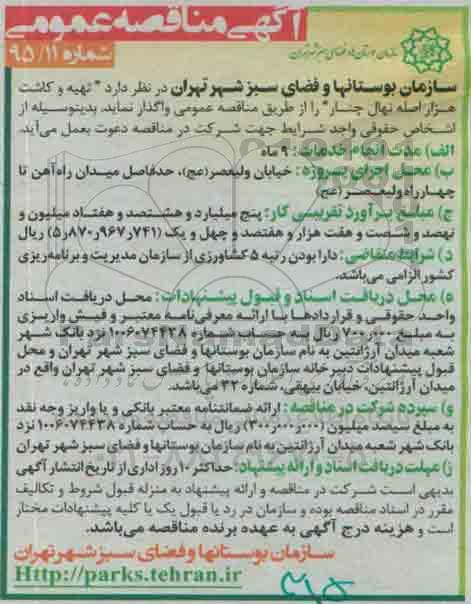 آگهی مناقصه عمومی
شماره ۹۵/۱۱
سازمان بوستانها و فضای سبز شهر تهران
سازمان بوستانها و فضای سبز شهر تهران در نظر دارد " تهیه و کاشت
هزار اصله نهال چنار" را از طریق مناقصه عمومی واگذار نماید. بدینوسیله از
اشخاص حقوقی واجد شرایط جهت شرکت در مناقصه دعوت بعمل می‌آید.
الف) مدت انجام خدمات: ۹ ماه
ب) محل اجرای پروژه: خیابان ولیعصر(عج)، حدفاصل میدان راه‌آهن تا
چهارراه ولیعصر (عج)
ج) مبلغ برآورد تقریبی کار: پنج میلیارد و هشتصد و هفتاد میلیون و
نهصد و شصت و هفت هزار و هفتصد و چهل و یک (۵٫۸۷۰٫۹۶۷٫۷۴۱) ریال
د) شرایط متقاضی: دارا بودن رتبه ۵ کشاورزی از سازمان مدیریت و برنامه‌ریزی
کشور الزامی می‌باشد.
ه) محل دریافت اسناد و قبول پیشنهادات: محل دریافت اسناد
واحد حقوقی و قراردادها با ارائه معرفی‌نامه معتبر و فیش واریزی
به مبلغ ۷۰۰٫۰۰۰ ریال به حساب شماره ۱۰۰۶۰۷۴۴۳۸ نزد بانک شهر
شعبه میدان آرژانتین به نام سازمان بوستانها و فضای سبز شهر تهران و محل
قبول پیشنهادات دبیرخانه سازمان بوستانها و فضای سبز شهر تهران واقع در
میدان آرژانتین، خیابان بیهقی، شماره ۳۲ می‌باشد.
و) سپرده شرکت در مناقصه: ارائه ضمانتنامه معتبر بانکی و یا واریز وجه نقد
به مبلغ سیصد میلیون (۳۰۰٫۰۰۰٫۰۰۰) ریال به حساب شماره ۱۰۰۶۰۷۴۴۳۸ نزد
بانک شهر شعبه میدان آرژانتین به نام سازمان بوستانها و فضای سبز شهر تهران
ز) مهلت دریافت اسناد و ارائه پیشنهاد: حداکثر ۱۰ روز اداری از تاریخ انتشار آگهی
بدیهی است شرکت در مناقصه و ارائه پیشنهاد به منزله قبول شروط و تکالیف
مقرر در اسناد مناقصه بوده و سازمان در رد یا قبول یک یا کلیه پیشنهادات مختار
است و هزینه درج آگهی به عهده برنده مناقصه می‌باشد.
سازمان بوستانها و فضای سبز شهر تهران
Http://parks.tehran.ir